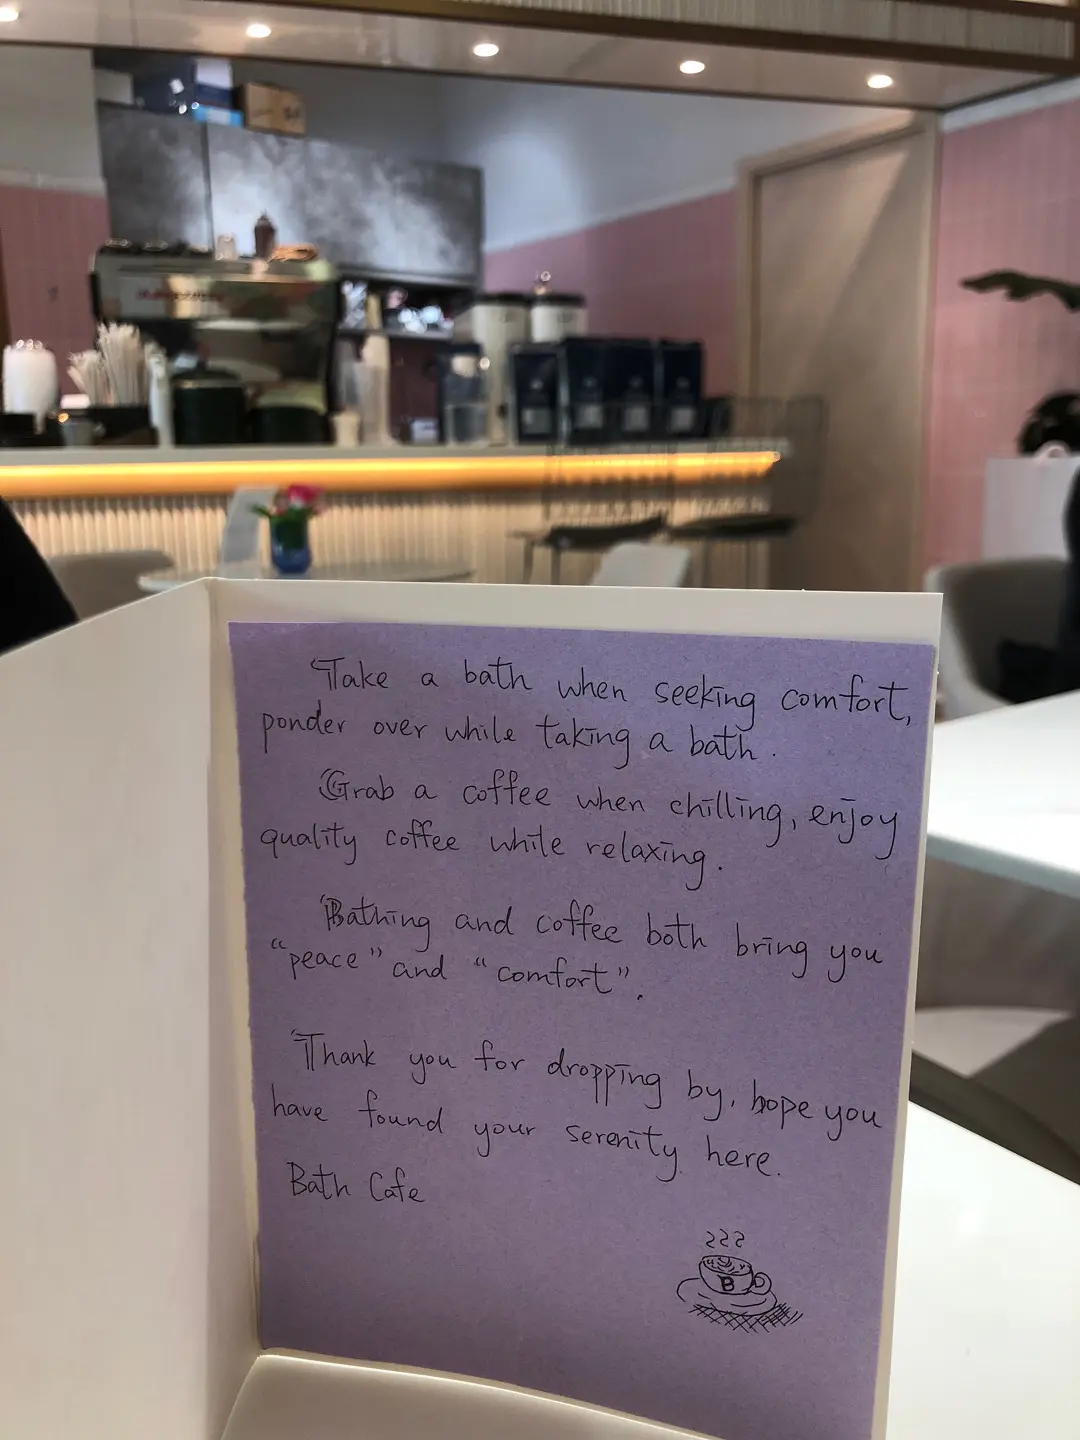 Take a bath when seeking comfort,
ponder over while taking a bath.
Grab a coffee when chilling, enjoy
quality coffee while relaxing.
Bathing and coffee both bring you
"peace" and "comfort".
Thank you for dropping by, hope you
have found your serenity here.
Bath Cafe
B